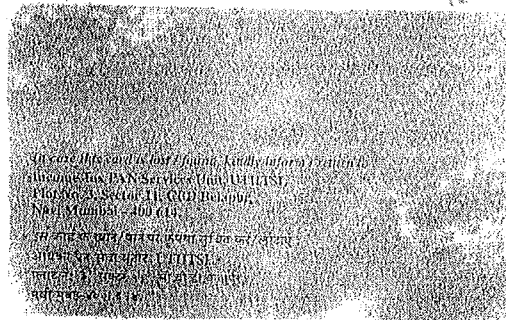 In case this card is lost / found, kindly inform / return to :
Income Tax PAN Services Unit, UTIITSL
Plot No. 3, Sector 11, CBD Belapur,
Navi Mumbai - 400 614.
इस कार्ड के खोने/पाने पर कृपया सूचित करें/लौटाएं
आयकर पैन सेवा यूनिट, UTIITSL
प्लाट नं: 3, सेक्टर 11, सी.बी.डी. बेलापुर,
नवी मुंबई-४०० ६१४.